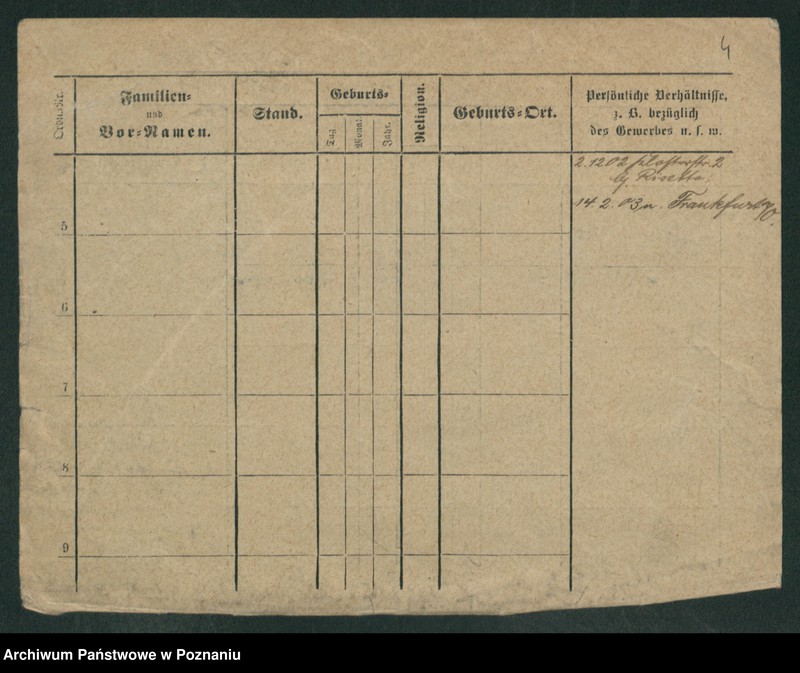 4
Ordnungsnr.
Familien-
und
Vor-Namen.
Stand.
Geburts-
Tag
Monat
Jahr.
Religion.
Geburts-Ort.
Persönliche Verhältnisse,
z. B. bezüglich
des Gewerbes u. s. w.
2.12 02 Klosterstr. 2
bj.
14. 2. 03 n. Frankfurt a/O.
5
6
7
8
9
Archiwum Państwowe w Poznaniu